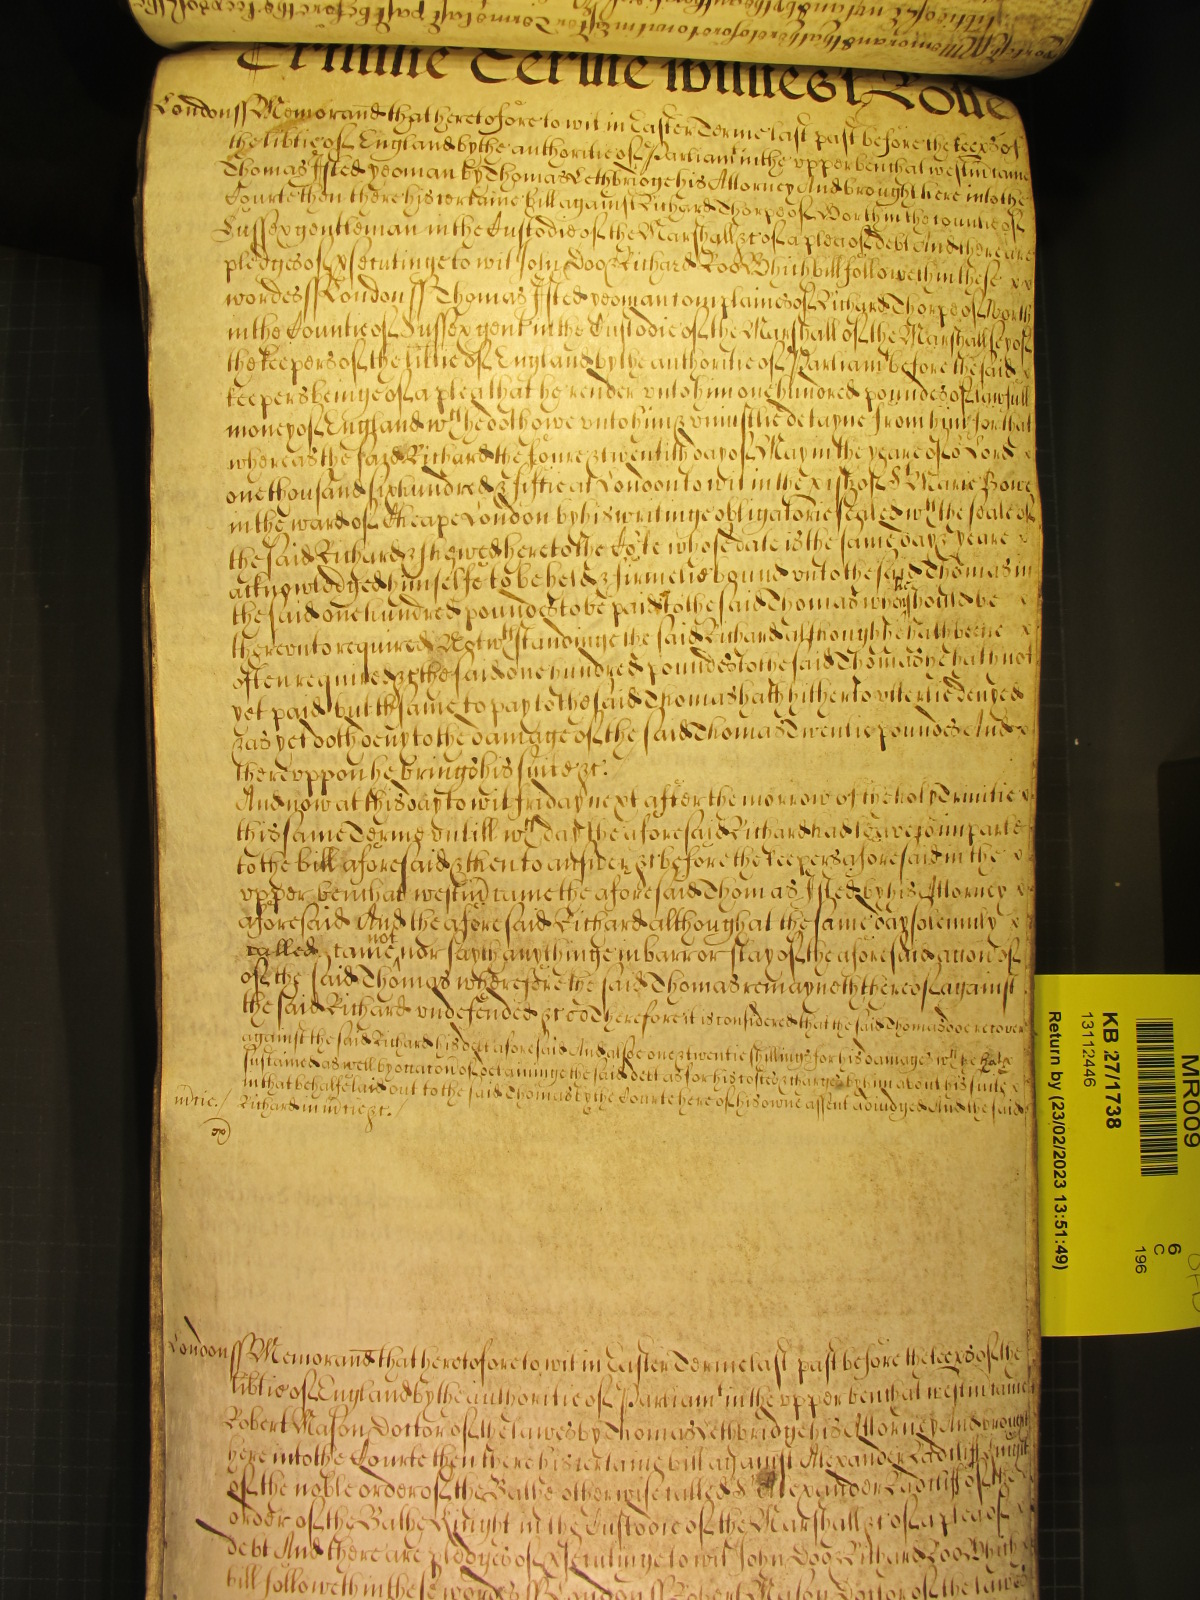 Trinitie Terme witnes Rolle
London ss Memorand that heretofore to wit in Easter Terme last past before the keeps of
the libtie of England by the authoritie of Parliamt in the upper bench at westm came
Thomas Isted yeoman by Thomas Lethbridge his Attorney And brought here into the
Courte then there his certaine bill against Richard Thorpe of Worth in the countie of
Sussex gentleman in the Custodie of the Marshall &c of a plea of debt And there are
pledges of psecutinge to wit John Doo & Richard Roo Which bill followeth in these
wordes ss London ss Thomas Isted yeoman complaines of Richard Thorpe of Worth
in the Countie of Sussex gent in the Custodie of the Marshall of the Marshallsey of
the keepers of the libtie of England by the authoritie of Parliamt before the said
keepers beinge of a plea that he render unto him one hundred poundes of lawfull
money of England wch he doth owe unto him & uniustlie detayne from him for that
whereas the said Richard the foure & twentith day of May in the yeare of or Lord
one thousand six hundred & fiftie at London to wit in the pish of St Marie Bowe
in the ward of Cheape London by his writinge obligatorie sealed wth the seale of
the said Richard & shewed here to the Cote whose date is the same day & yeare
acknowledged himselfe to be held & firmelie bound unto the said Thomas in
the said one hundred poundes to be paid to the said Thomas when he should be
thereunto required Notwthstandinge the said Richard although he hath beene
often required &c the said one hundred poundes to the said Thomas he hath not
yet paid but the same to pay to the said Thomas hath hitherto utterlie denyed
& as yet doth deny to the damage of the said Thomas Twentie poundes And
thereuppon he brings his suite &c.
And now at this day to wit friday next after the morrow of the holy Trinitie
this same Terme untill wch day the aforesaid Richard had leave to imparle
to the bill aforesaid & then to answer &c before the keepers aforesaid in the
upper bench at westm came the aforesaid Thomas Isted by his Attorney
aforesaid And the aforesaid Richard although at the same day solemnly
called came not nor sayth anythinge in barr or stay of the aforesaid action of
of the said Thomas wherefore the said Thomas remayneth thereof against
the said Richard undefended &c Therefore it is considered that the said Thomas doe recover
against the said Richard his debt aforesaid And alsoe one & twentie shillings for his damages wch he hath
sustained as well by occation of detaininge the said debt as for his costes & charges by him about his suite
in that behalfe laid out to the said Thomas by the Courte here of his owne assent adiudged And the said
mcie./ Richard in mcie &c./
London ss Memorand that heretofore to wit in Easter Terme last past before the keeps of the
libtie of England by the authoritie of Parliamt in the upper bench at westm came
Robert Mason Doctor of the lawes by Thomas Lethbridge his Attorney And brought
here into the Courte then there his certaine bill against Alexander Radcliff knight
of the noble order of the Bathe otherwise called Sr Alexander Radcliff of the
order of the Bathe Knight in the Custodie of the Marshall &c of a plea of
debt And there are pledges of psecutinge to wit John Doo & Richard Roo Which
bill followeth in these wordes ss London ss Robert Mason Doctor of the lawes
MR009
6
C
196
KB 27/1738
13112446
Return by (23/02/2023 13:51:49)